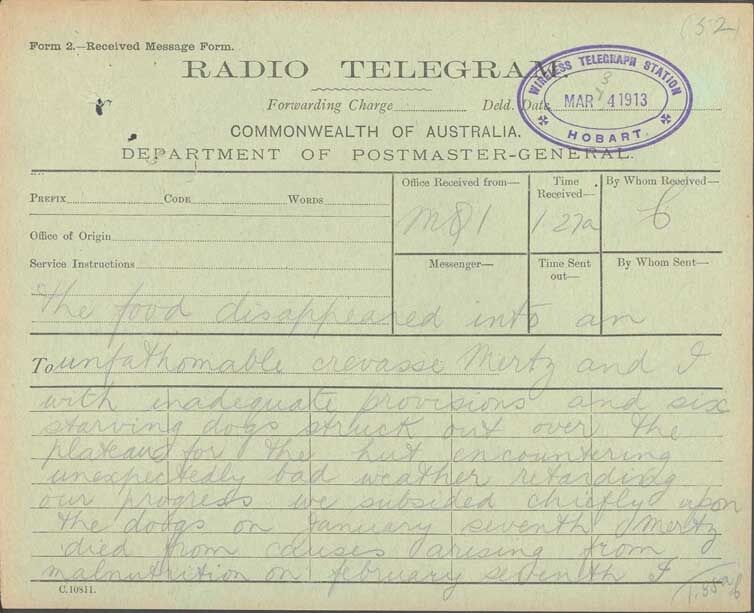 (52)
Form 2.—Received Message Form.
RADIO TELEGRAM.
WIRELESS TELEGRAPH STATION
MAR 4 1913
HOBART.
Forwarding Charge Deld. Date
COMMONWEALTH OF AUSTRALIA.
DEPARTMENT OF POSTMASTER-GENERAL.
PREFIX CODE WORDS
Office of Origin
Service Instructions
Office Received from—
Time Received—
By Whom Received—
1 27a
Messenger—
Time Sent out—
By Whom Sent—
the food disappeared into an
To unfathomable crevasse Mertz and I
with inadequate provisions and six
starving dogs struck out over the
plateau for the hut encountering
unexpectedly bad weather retarding
our progress we subsided chiefly upon
the dodgs on January seventh Mertz
died from causes arising from
malnutrition on february seventh I
C.10811.
1.35a